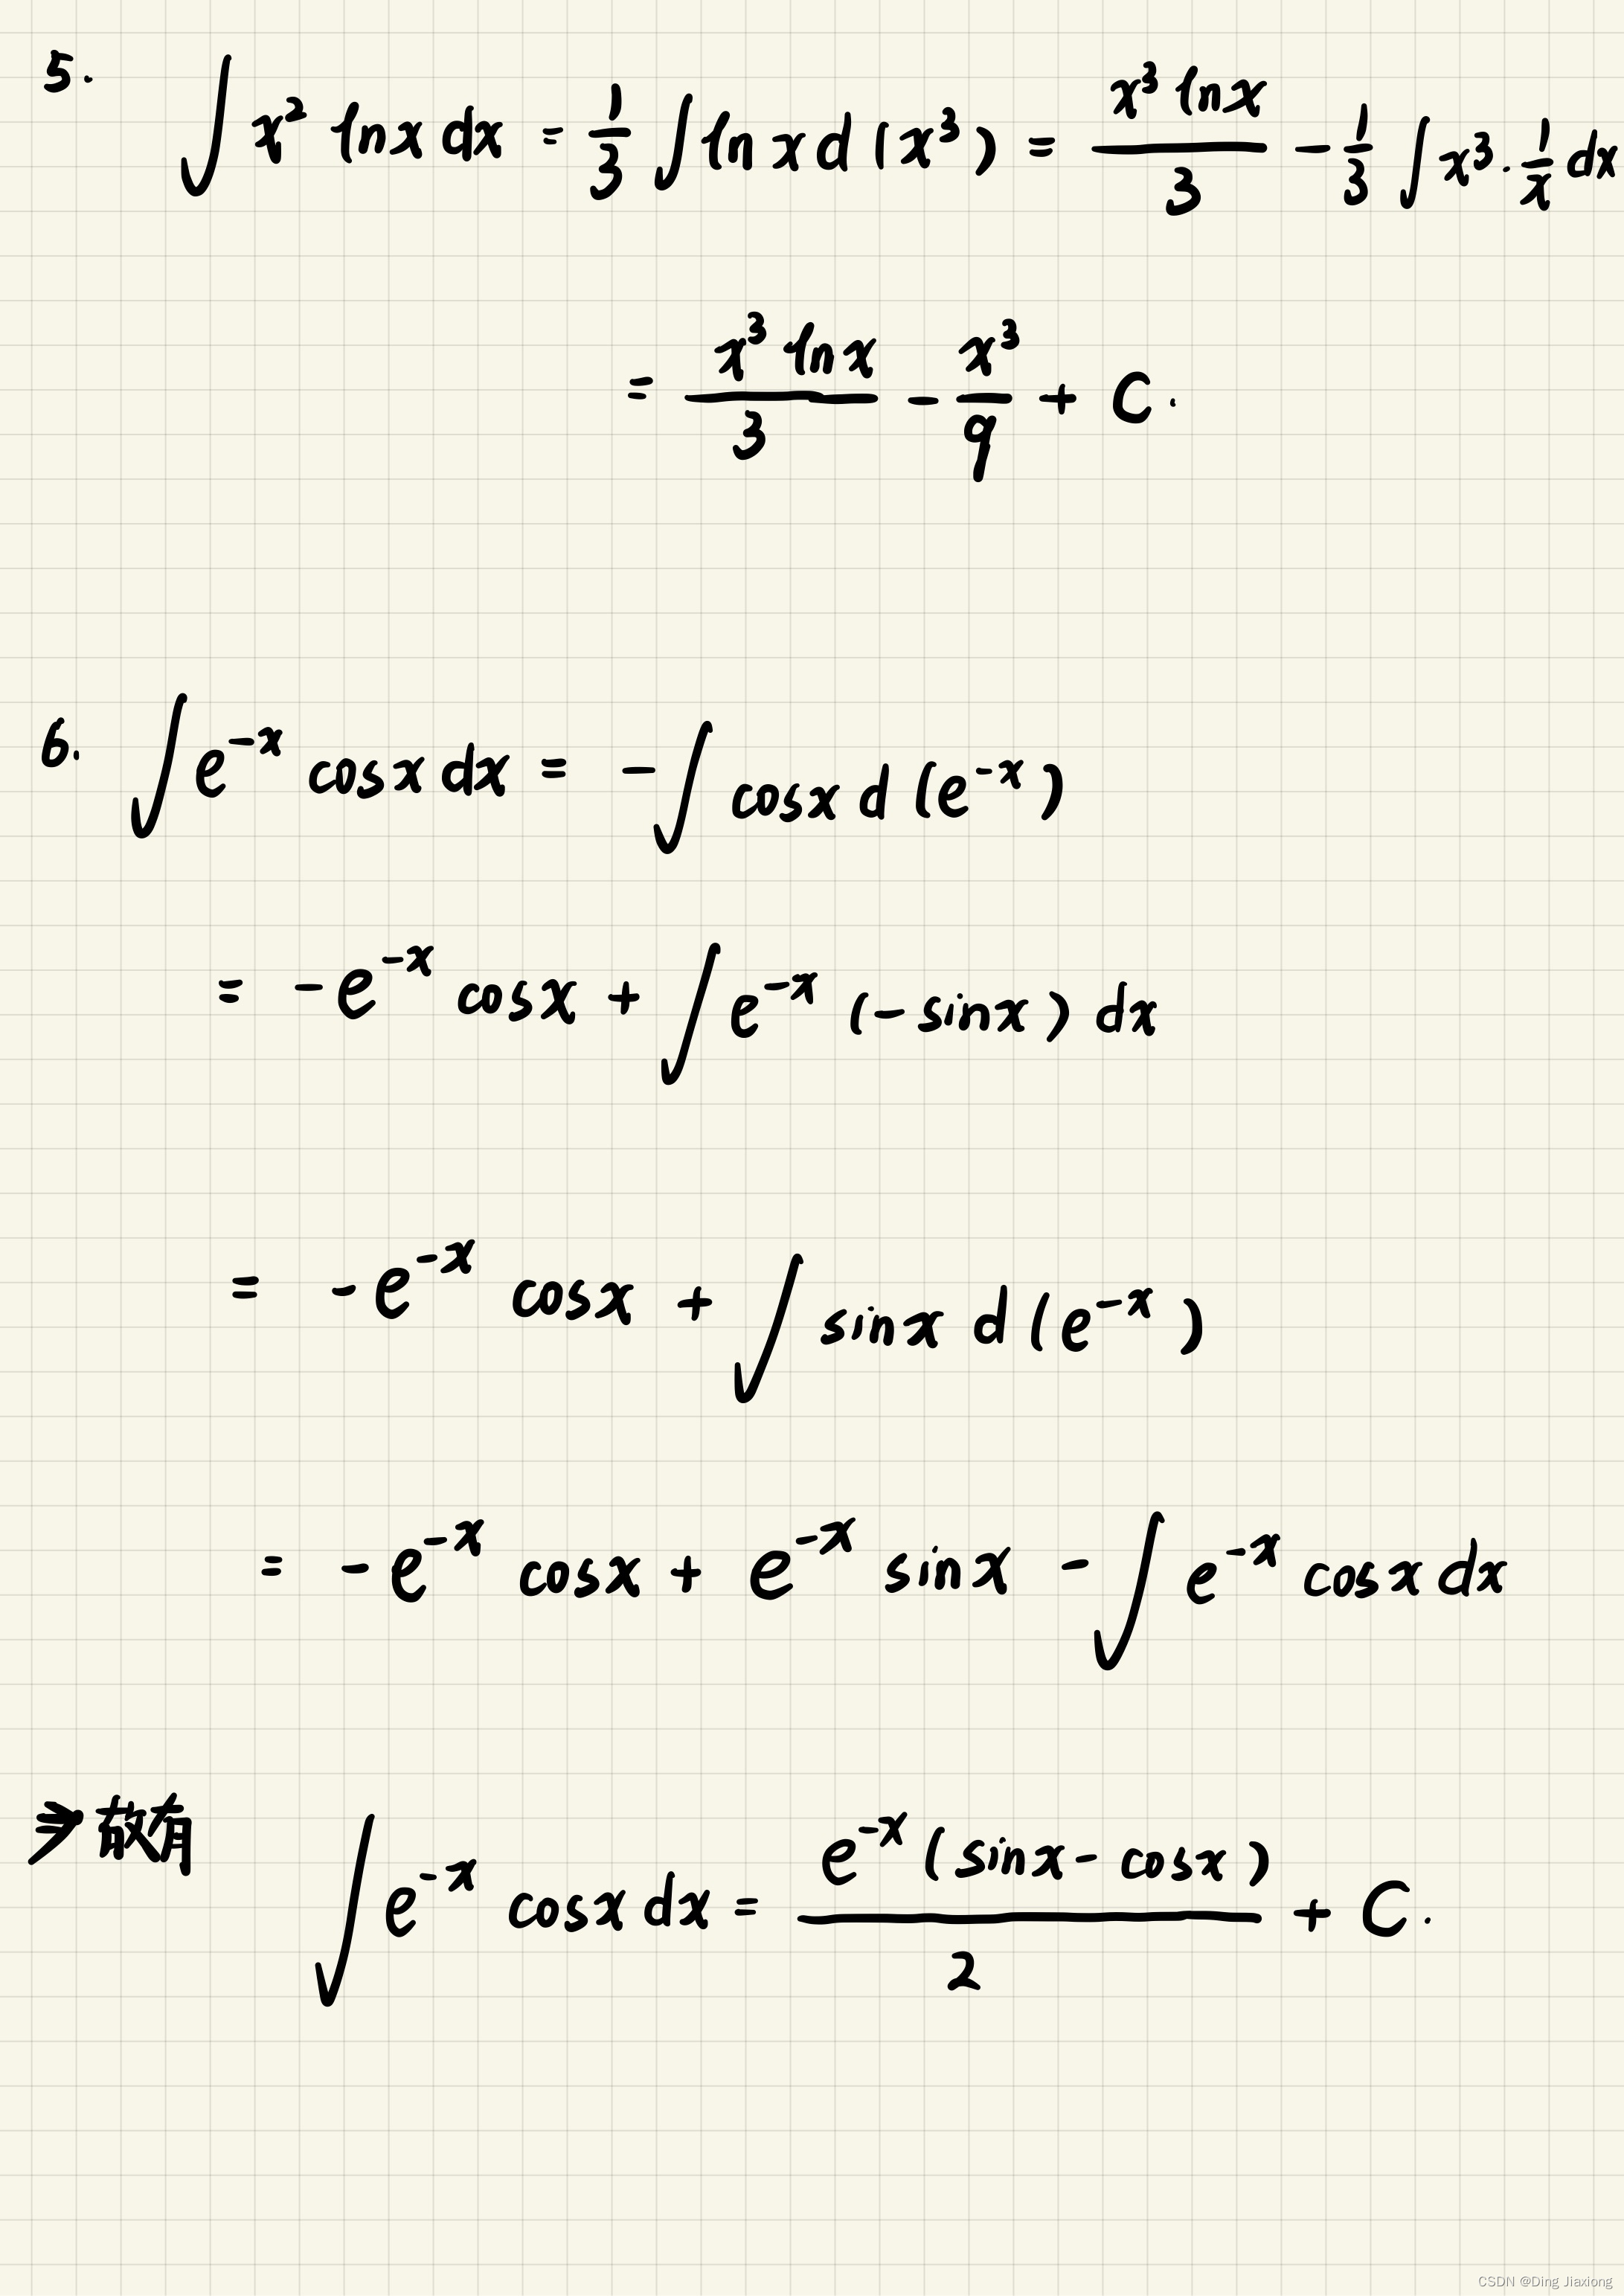 5. ∫ x² ln x dx = 1/3 ∫ ln x d(x³) = x³ ln x / 3 - 1/3 ∫ x³ · 1/x dx
= x³ ln x / 3 - x³/9 + C.
6. ∫ e^{-x} cos x dx = -∫ cos x d(e^{-x})
= -e^{-x} cos x + ∫ e^{-x} (-sin x) dx
= -e^{-x} cos x + ∫ sin x d(e^{-x})
= -e^{-x} cos x + e^{-x} sin x - ∫ e^{-x} cos x dx
⇒ 故有 ∫ e^{-x} cos x dx = e^{-x} (sin x - cos x) / 2 + C.
CSDN @Ding Jiaxiong